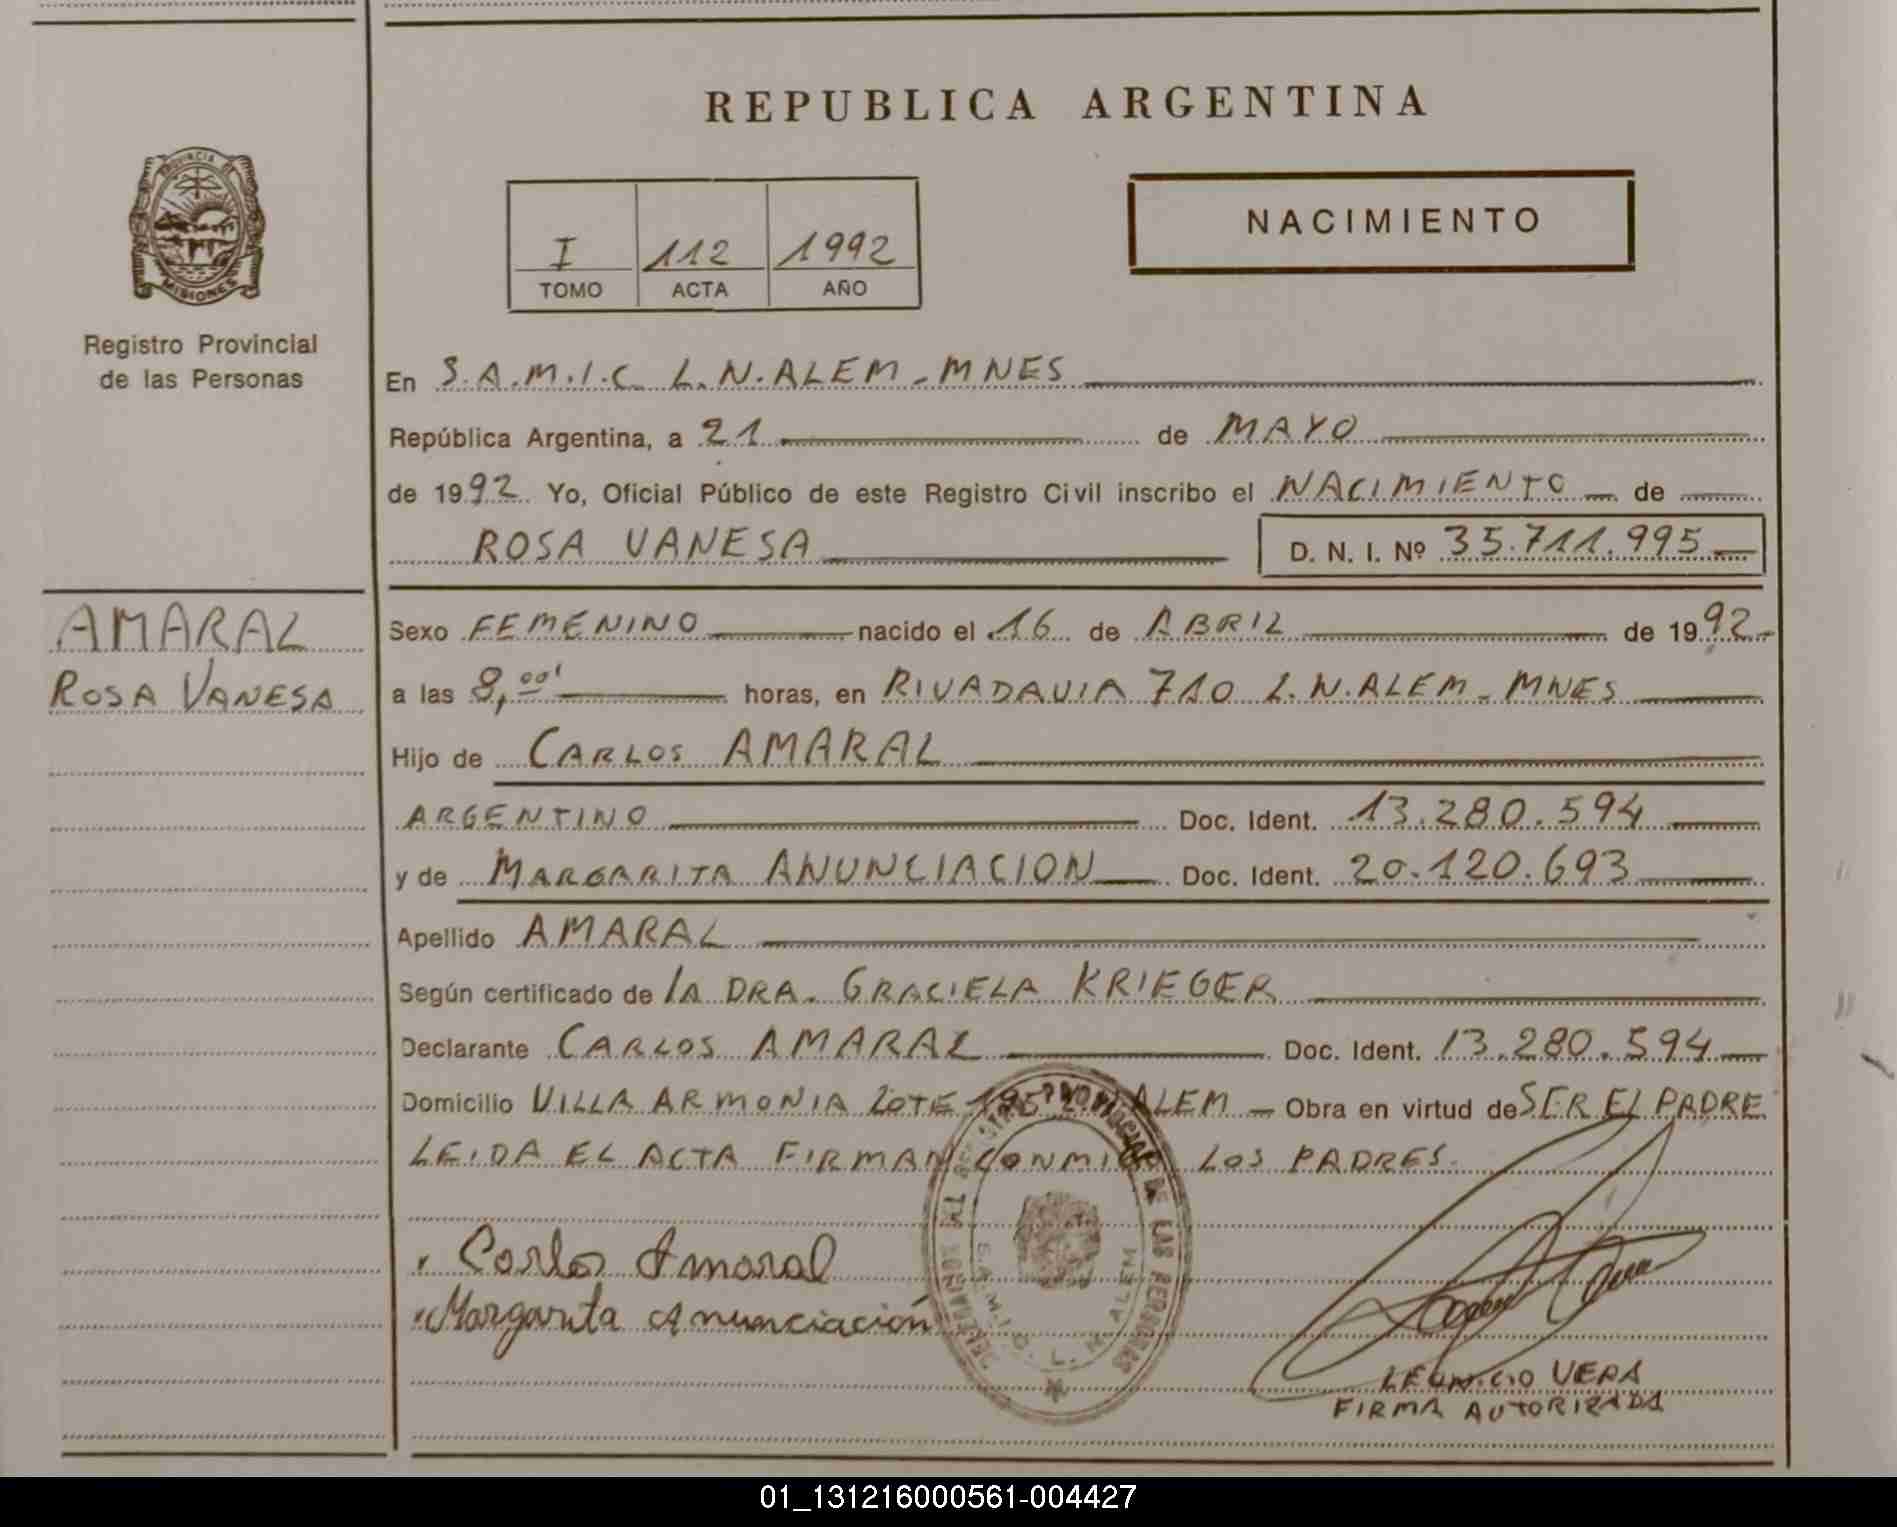 REPUBLICA ARGENTINA
PROVINCIA DE
MISIONES
Registro Provincial
de las Personas
I 112 1992
TOMO ACTA AÑO
NACIMIENTO
En S.A.M.I.C. L.N.ALEM-MNES
República Argentina, a 21 de MAYO
de 1992 Yo, Oficial Público de este Registro Civil inscribo el NACIMIENTO de
ROSA VANESA D. N. I. Nº 35.711.995
AMARAL
ROSA VANESA
Sexo FEMENINO nacido el 16 de ABRIL de 1992
a las 8,00' horas, en RIVADAVIA 710 L.N.ALEM-MNES
Hijo de CARLOS AMARAL
ARGENTINO Doc. Ident. 13.280.594
y de MARGARITA ANUNCIACION Doc. Ident. 20.120.693
Apellido AMARAL
Según certificado de LA DRA. GRACIELA KRIEGER
Declarante CARLOS AMARAL Doc. Ident. 13.280.594
Domicilio VILLA ARMONIA LOTE ALEM Obra en virtud de SER EL PADRE
LEIDA EL ACTA FIRMAN CONMIGO LOS PADRES.
Carlos Amaral
Margarita Anunciación
PROVINCIAL DE LAS PERSONAS
S.A.M.I.C. L.N. ALEM
LEONICIO VERA
FIRMA AUTORIZADA
01_131216000561-004427